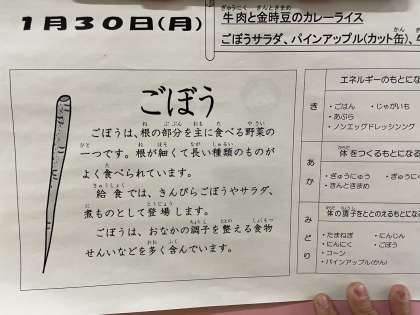 1月30日(月)
牛肉と金時豆のカレーライス
ごぼうサラダ、パインアップル(カット缶)、
ごぼう
ごぼうは、根の部分を主に食べる野菜の
一つです。根が細くて長い種類のものが
よく食べられています。
給食では、きんぴらごぼうやサラダ、
煮ものとして登場します。
ごぼうは、おなかの調子を整える食物
せんいなどを多く含んでいます。
エネルギーのもとにな
き
・ごはん ・じゃがいも
・あぶら
・ノンエッグドレッシング
体をつくるもとになる
あか
・ぎゅうにゅう ・ぎゅうにく
・きんときまめ
体の調子をととのえるもとになる
みどり
・たまねぎ ・にんじん
・にんにく ・ごぼう
・コーン
・パインアップル(かん)